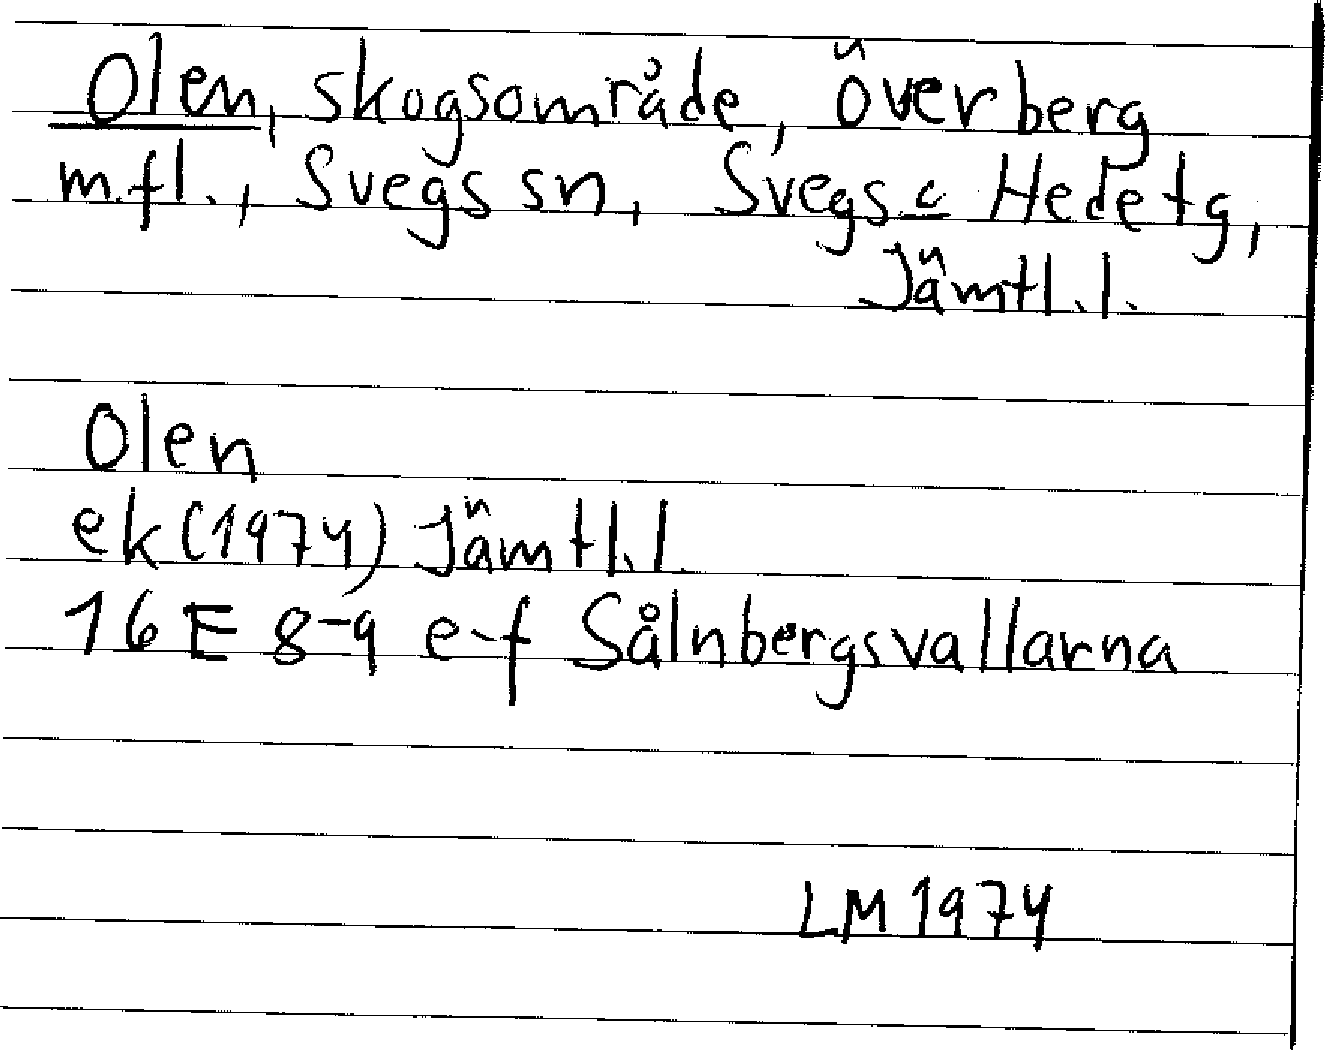 Olen, skogsområde, Överberg
m.fl., Svegs sn, Svegs o Hede tg,
Jämtl.l.
Olen
ek (1974) Jämtl.l.
16 E 8-9 e-f Sålnbergsvallarna
LM 1974